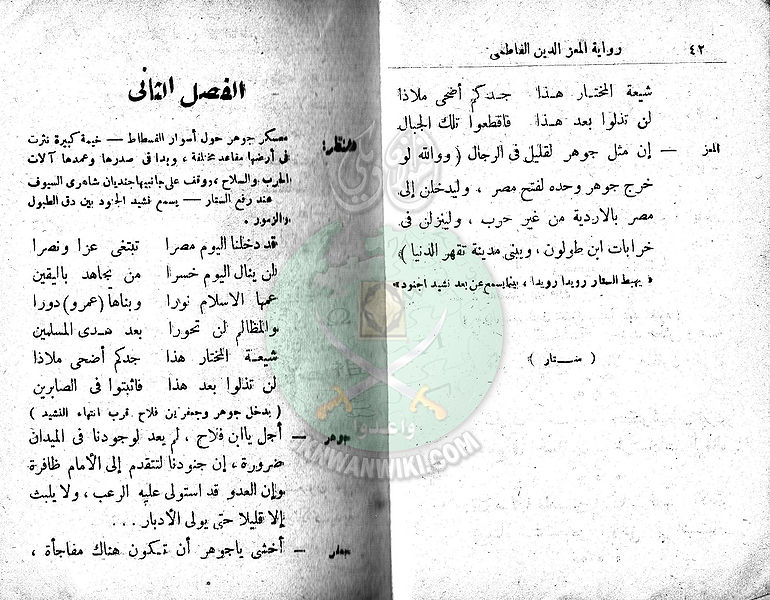 ٤٢
رواية المعز الدين الفاطمى
شيعة المختار هذا جدكم أضحى ملاذا
لن تذلوا بعد هذا فاقطعوا تلك الجبال
المعز — إن مثل جوهر لقليل فى الرجال (ووالله لو
خرج جوهر وحده لفتح مصر ، وليدخلن إلى
مصر بالاردية من غير حرب ، ولينزلن فى
خرابات ابن طولون ، ويبنى مدينة تقهر الدنيا )
« يهبط الستار رويدا رويدا ، بينما يسمع عن بعد نشيد الجنود »
( ستار )
الفصل الثانى
المنظر: معسكر جوهر حول أسوار الفسطاط — خيمة كبيرة نثرت
فى أرضها مقاعد مختلفة ، وبدا فى صدرها وعمدها آلات
الحرب والسلاح ، ووقف على جانبيها جنديان شاهرى السيوف
عند رفع الستار — يسمع نشيد الجنود بين دق الطبول
والزمور .
قد دخلنا اليوم مصرا نبتغى عزا ونصرا
لن ينال اليوم خسرا من يجاهد باليقين
عمها الاسلام نورا وبناها (عمرو) دورا
والمظالم لن تحورا بعد هدى المسلمين
شيعة المختار هذا جدكم أضحى ملاذا
لن تذلوا بعد هذا فاثبتوا فى الصابرين
( يدخل جوهر وجعفر بن فلاح قرب انتهاء النشيد )
جوهر — أجل يا ابن فلاح ، لم يعد لوجودنا فى الميدان
ضرورة ، إن جنودنا لتتقدم إلى الأمام ظافرة
وإن العدو قد استولى عليه الرعب ، ولا يلبث
إلا قليلا حتى يولى الأدبار ...
جعفر — أخشى ياجوهر أن تكون هناك مفاجأة ،
وأعدوا
IKHWANWIKI.COM